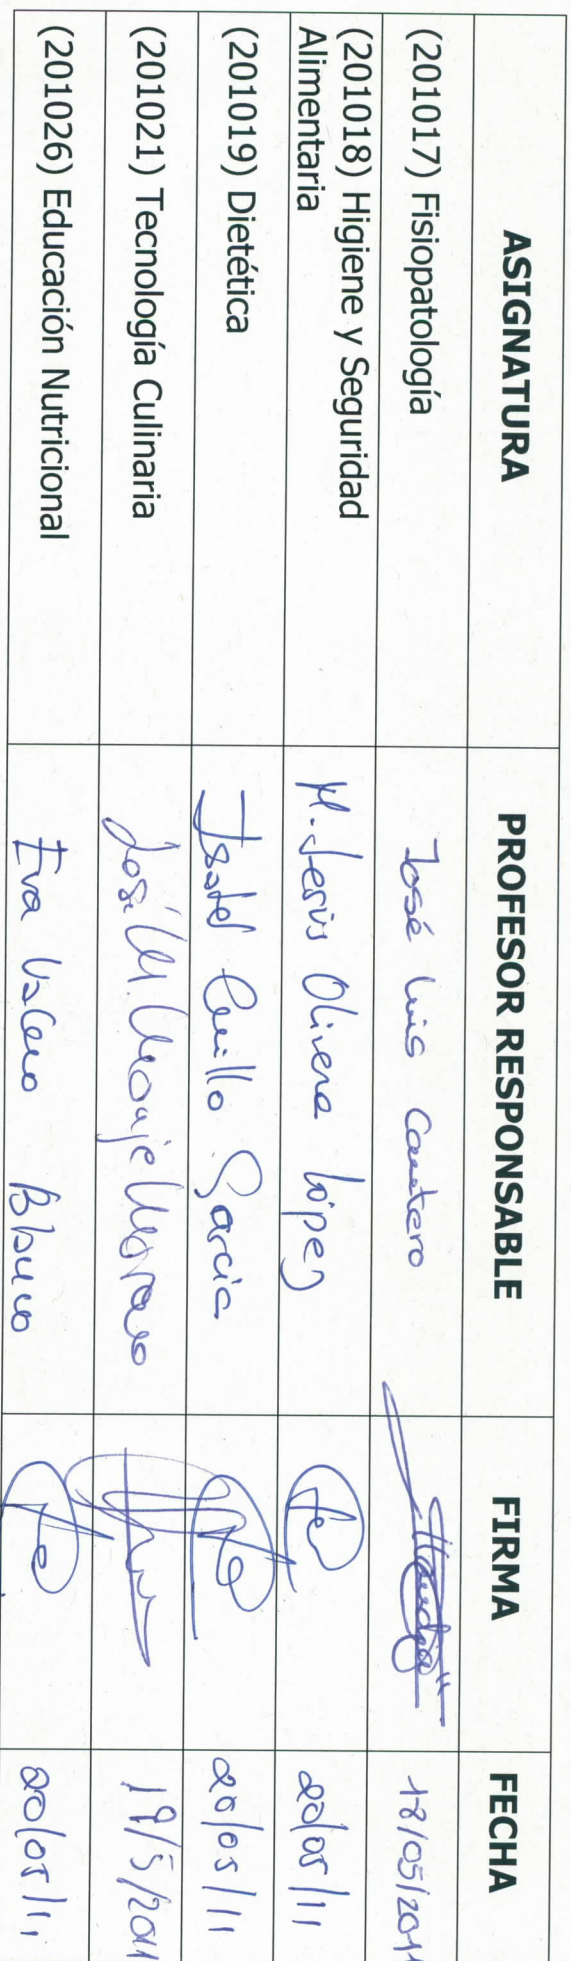 ASIGNATURA PROFESOR RESPONSABLE FIRMA FECHA
(201017) Fisiopatología José Luis Cantero 18/05/2011
(201018) Higiene y Seguridad
Alimentaria M. Jesús Olivera López 20/05/11
(201019) Dietética Isabel Cerrillo García 20/05/11
(201021) Tecnología Culinaria José M. Monje Moreno 19/5/2011
(201026) Educación Nutricional Eva Valero Blanco 20/05/11